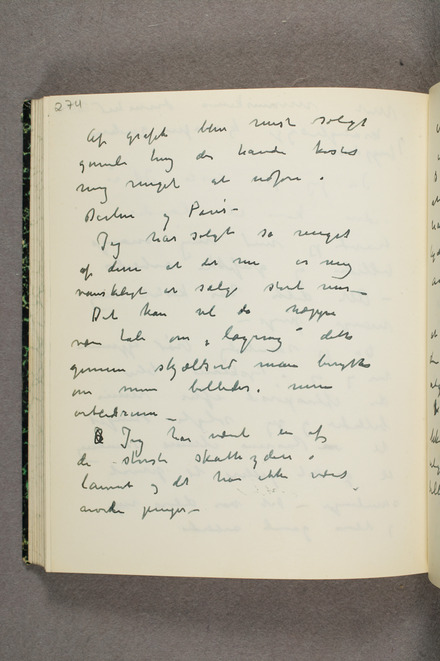 274
Af grafik blev mest solgt
gamle ting der havde kostet
mig meget at udføre.
Berlin og Paris –
Jeg har solgt så meget
af dem at det nu er mig
vanskeligt at sælge stort mer –
Det kan vel da næppe
være tale om „lagring" dette
gemene skjældsord man brugte
om mine billeder. mine
arbeidsrum –
Jeg har været en af
de største skatteydere i
landet og det har ikke vært
andre penger –